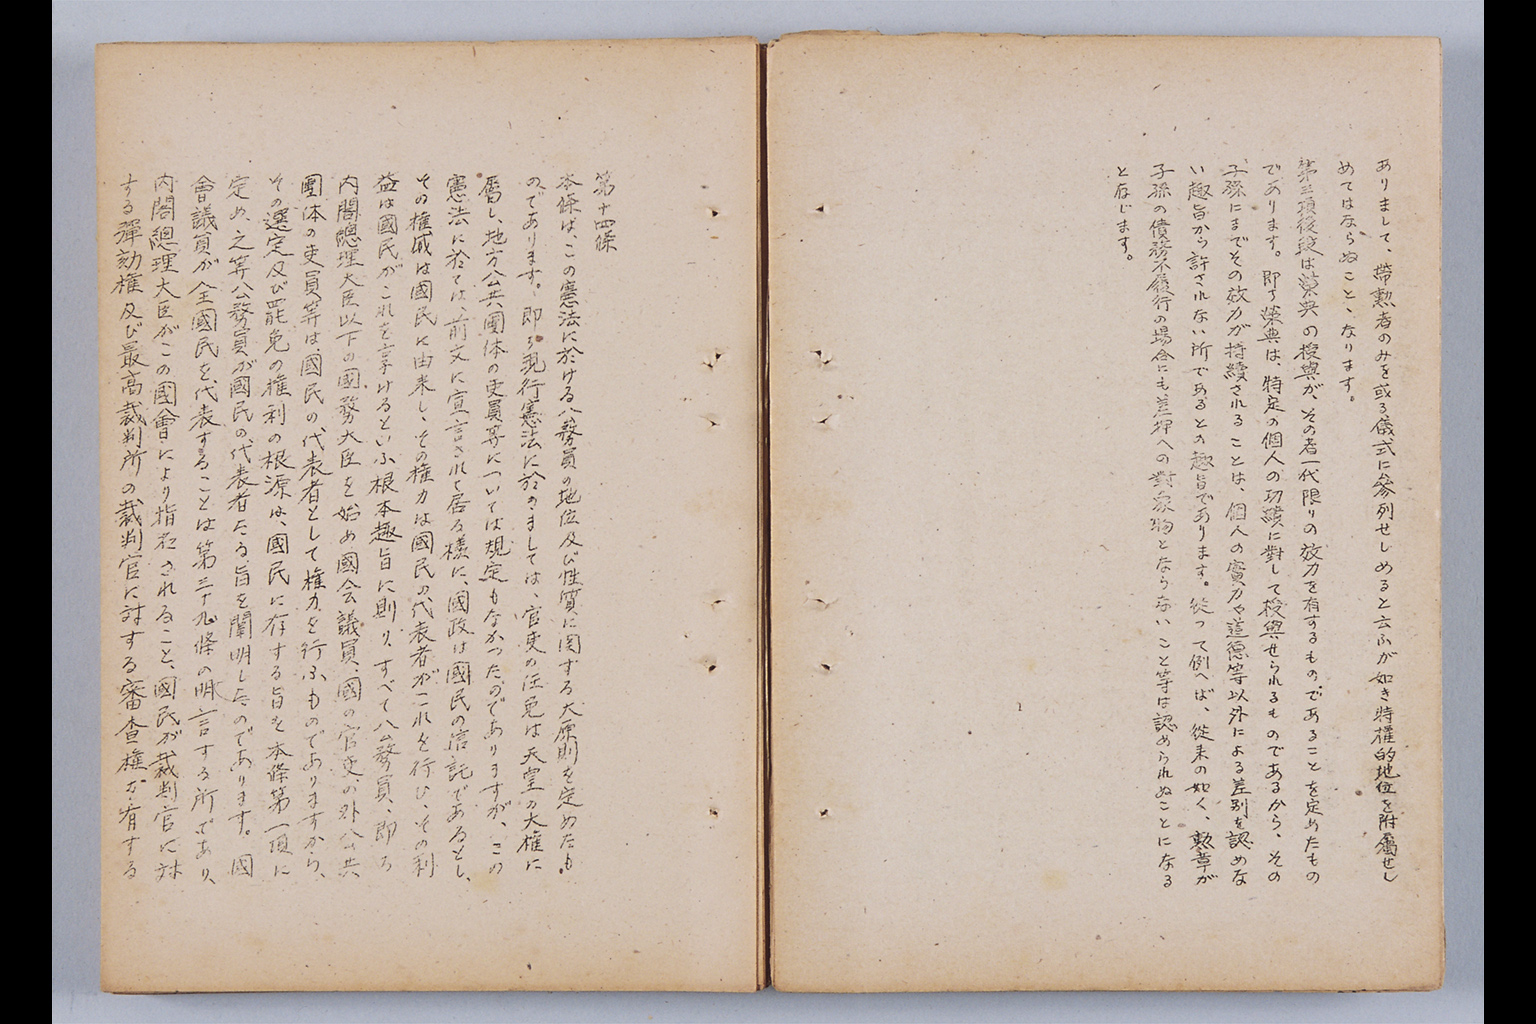 ありまして、帶勲者のみを或る儀式に參列せしめると云ふが如き特權的地位を附屬せし
めてはならぬこと、なります。
第三項後段は榮典の授與が、その者一代限りの效力を有するものであることを定めたもの
であります。即ち榮典は、特定の個人の功績に對して授與せられるものであるから、その
子孫にまでその效力が持續されることは、個人の實力や道德等以外による差別を認めな
い趣旨から許されない所であるとの趣旨であります。從つて例へば、從來の如く、勲章が
子孫の債務不履行の場合にも差押への對象物とならないこと等は認められぬことになる
と存じます。
第十四條
本條は、この憲法に於ける公務員の地位及び性質に関する大原則を定めたも
のであります。即ち現行憲法に於きましては、官吏の任免は天皇の大權に
屬し、地方公共團体の吏員等については規定もなかつたのでありますが、この
憲法に於ては、前文に宣言されて居る樣に、國政は國民の信託であるとし、
その権威は國民に由来し、その権力は國民の代表者がこれを行ひ、その利
益は國民がこれを享けるといふ根本趣旨に則り、すべて公務員、即ち
内閣總理大臣以下の國務大臣を始め國会議員、國の官吏の外公共
團体の吏員等は國民の代表者として権力を行ふものでありますから、
その選定及び罷免の権利の根源は、國民に存する旨を本條第一項に
定め、之等公務員が國民の代表者たる旨を闡明したのであります。國
會議員が全國民を代表することは第三十九條の明言する所であり、
内閣總理大臣がこの國會により指名されること、國民が裁判官に対
する彈劾権及び最高裁判所の裁判官に対する審査権を有する